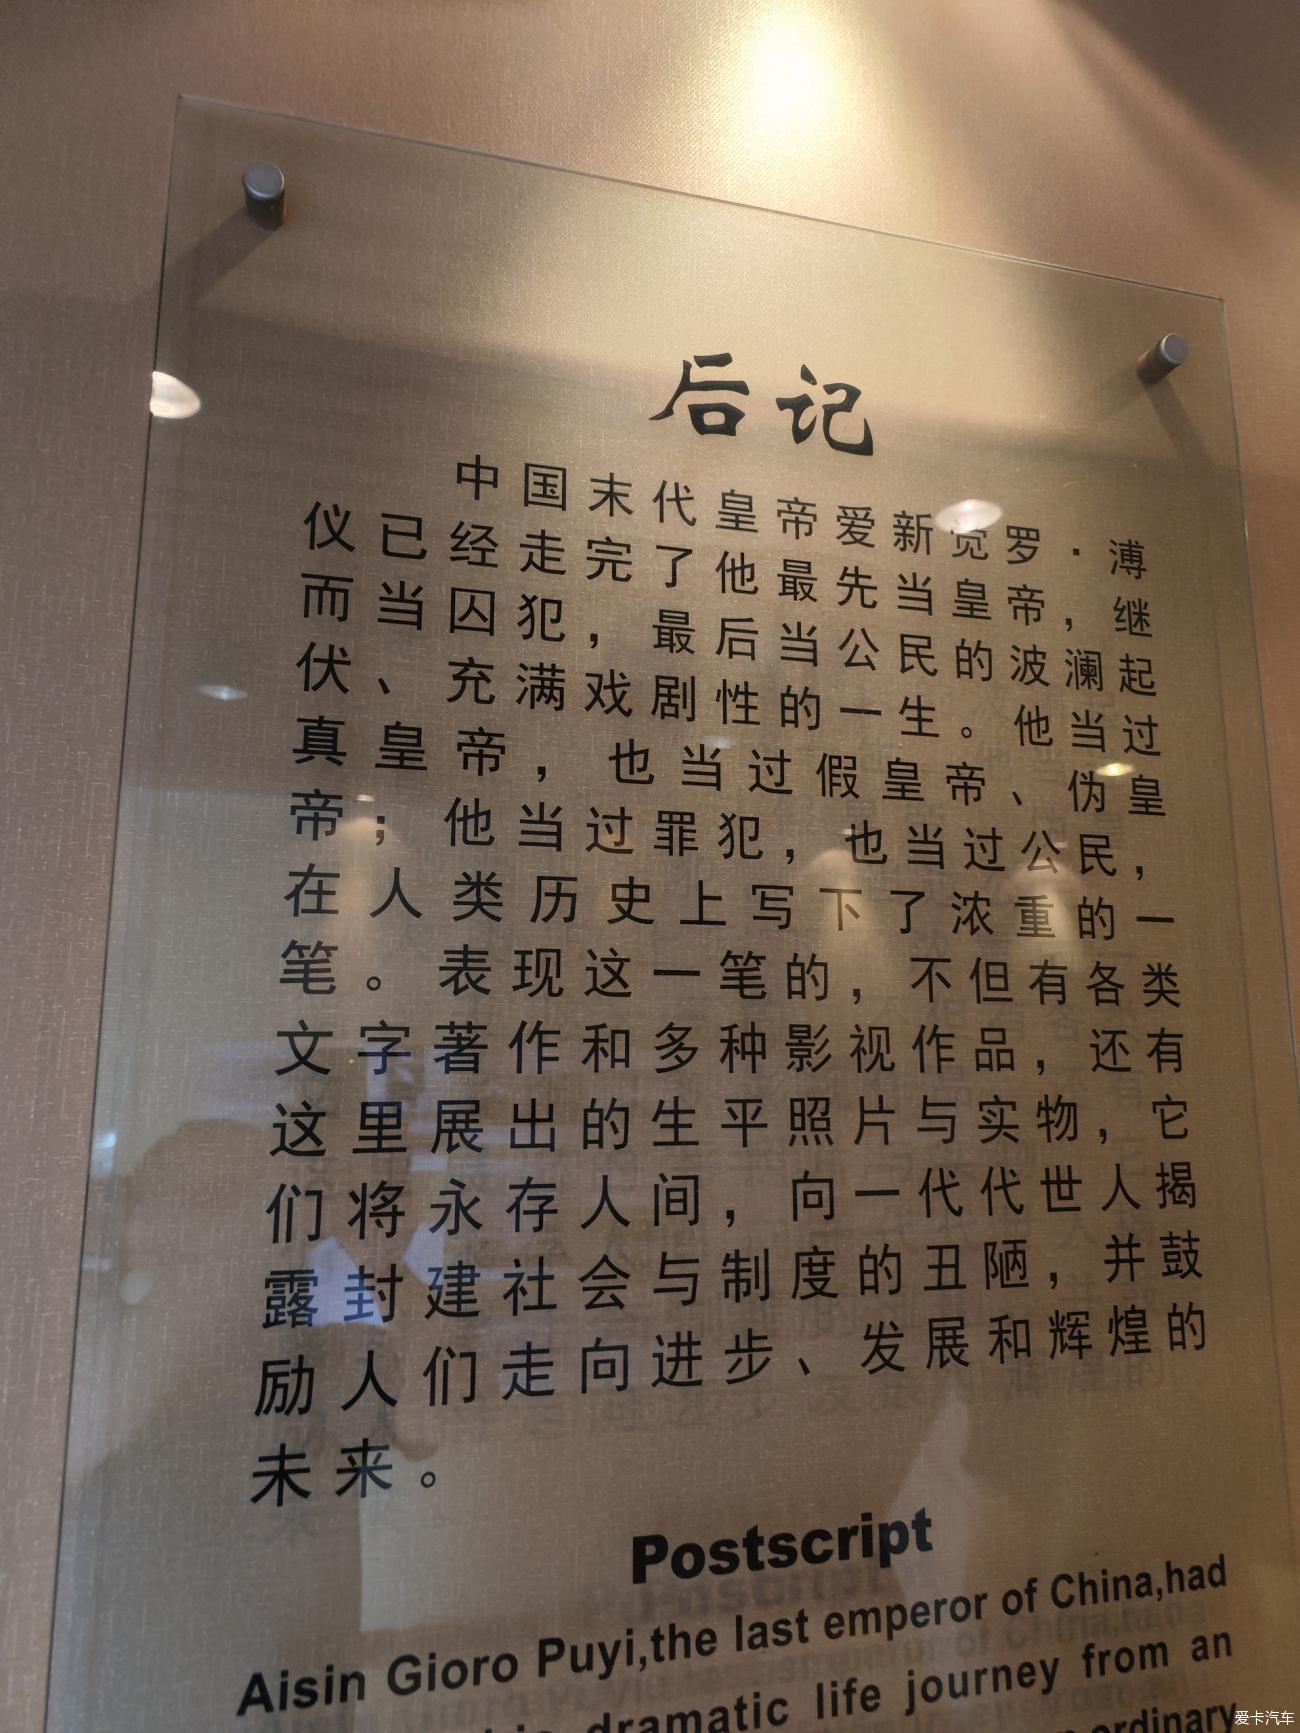 后记
中国末代皇帝爱新觉罗·溥
仪已经走完了他最先当皇帝，继
而当囚犯，最后当公民的波澜起
伏、充满戏剧性的一生。他当过
真皇帝，也当过假皇帝、伪皇
帝；他当过罪犯，也当过公民，
在人类历史上写下了浓重的一
笔。表现这一笔的，不但有各类
文字著作和多种影视作品，还有
这里展出的生平照片与实物，它
们将永存人间，向一代代世人揭
露封建社会与制度的丑陋，并鼓
励人们走向进步、发展和辉煌的
未来。
Postscript
Aisin Gioro Puyi,the last emperor of China,had
dramatic life journey from an
ordinary
爱卡汽车